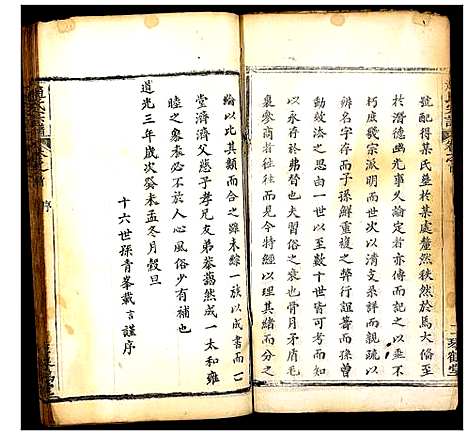 號配得某氏塋於某處釐然秩然於馬大備至
於潛德幽光事久論定者亦傳而記之以垂不
朽庶幾宗派明而世次以清支系詳而親疏以
辨名字存而子孫鮮重複之弊行誼壽而孫曾
動效法之思一世以至數十世皆可由此數
以永存於弗替也夫習俗之衰也骨肉矛盾毛
裏參商者何可勝數今經以理其緒而分之
綸以比其類而合之雖未綜一族以成書而一
堂濟濟父慈子孝兄友弟恭藹然成一太和雍
睦之象未必不於人心風俗少有補也
道光三年歲次癸未孟冬月穀旦
十六世孫青峯載言謹序
序